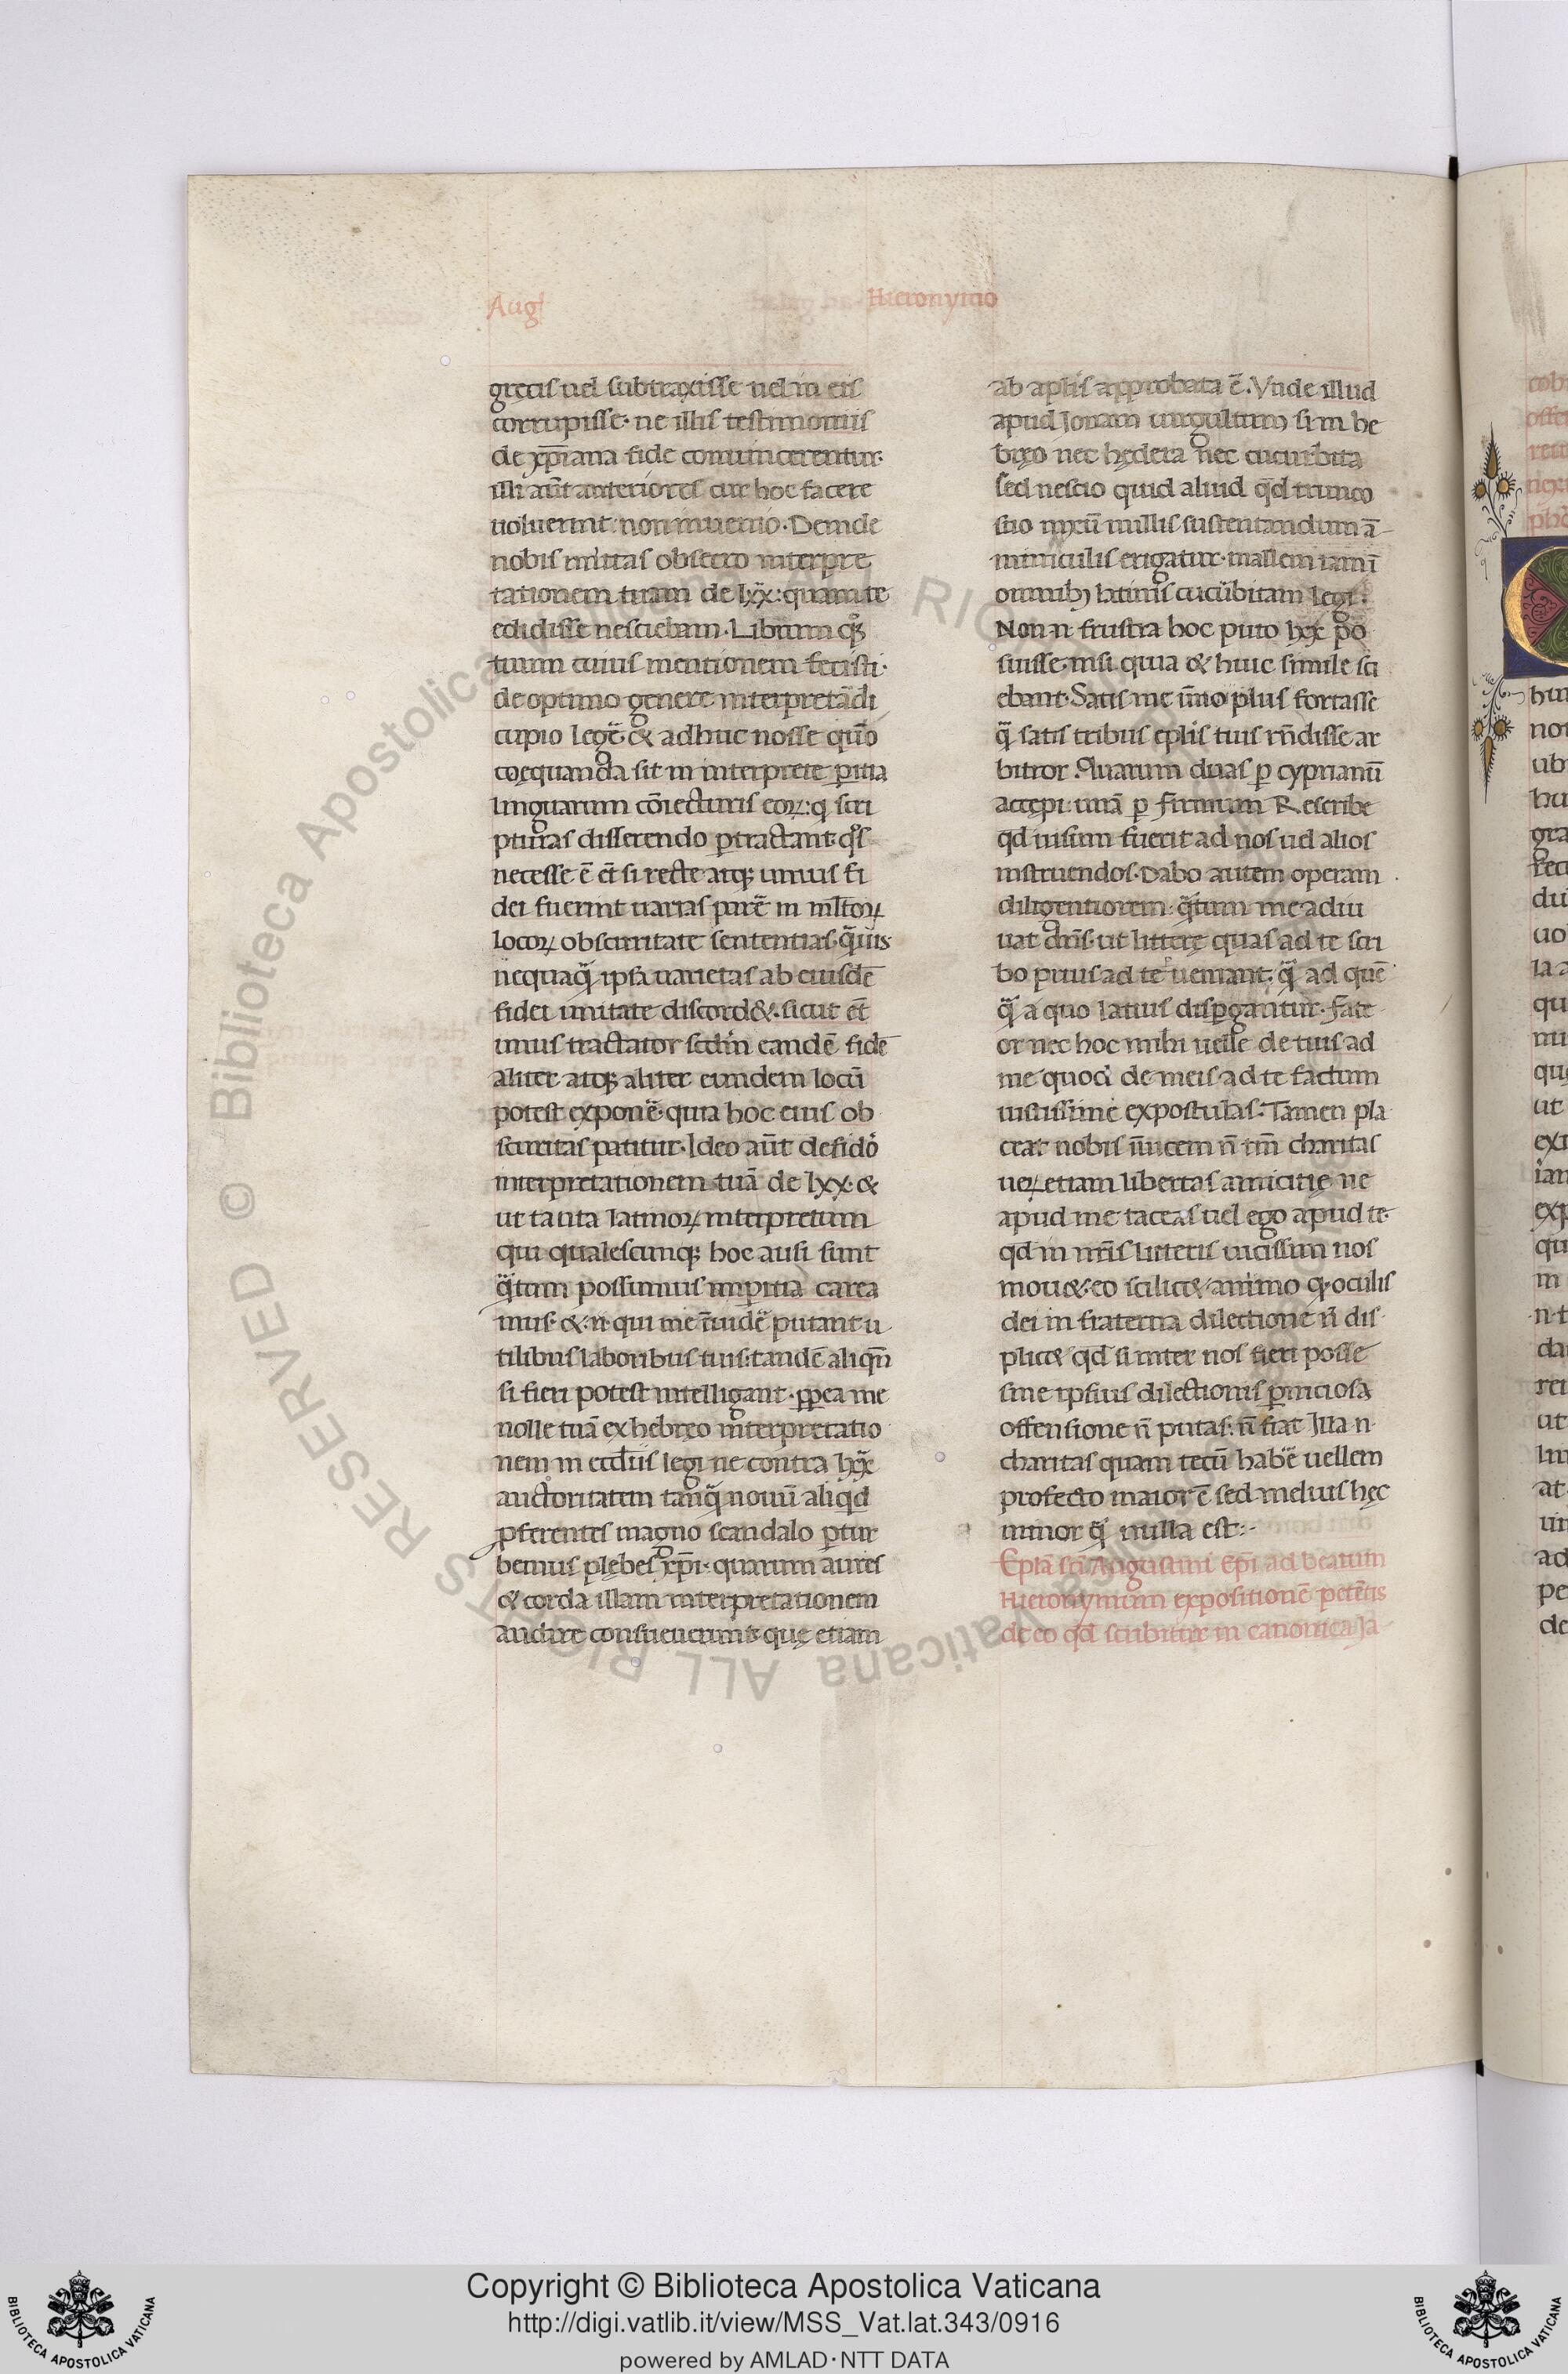 Augꝰ
Hieronymo
gręcis uel subtraxisse uel in eis
corrupisse· ne illis testimoniis
de xp̄iana fide conuincerentur·
illi aūt anteriores cur hoc facere
uoluerint: non inuenio. Deinde
nobis mittas obsecro interpre
tationem tuam de lxx: quam te
edidisse nesciebam. Librum qȝ
tuum cuius mentionem fecisti·
de optimo genere interpretādi
cupio legē· & adhuc nosse quō
coęquanda sit in interprete ꝑitia
linguarum cōiecturis eoꝝ: q̇ scri
pturas disserendo ꝑtractant· q̊s
necesse ē et̄ si recte atqȝ unius fi
dei fuerint uarias parē in ml̄toꝝ
locoꝝ obscuritate sententias· q̄uis
nequaq̄ ipsa uarietas ab eiusdē
fidei unitate discord&· sicut et̄
unus tractator scdm̄ eandē fidē
aliter atqȝ aliter eundem locū
potest exponē· quia hoc eius ob
scuritas patitur. Ideo aūt desidō
interpretationem tuā de lxx· &
ut tanta latinoꝝ interpretum
qui qualescunqȝ hoc ausi sunt
q̄tum possumus imꝑitia carea
mus· & n̄ qui me īuidē putant u
tilibus laboribus tuis: tandē aliqn̄
si fieri potest intelligant· ꝓpea me
nolle tuā ex hebręo interpretatio
nem in eccl̄iis legi ne contra lxx
auctoritatem tanq̄ nouū aliqd
ꝓferentes magno scandalo ꝑtur
bemus plębes xp̄i· quarum aures
& corda illam interpretationem
audire consueuerunt· quę etiam
ab aplis approbata ē. Vnde illud
apud Ionam uirgultum si in he
bręo nec hędera nec cucurbita
sed nescio quid aliud qd trunco
suo nixū nullis sustentandum ā
miniculis erigatur· mallem iam ī
omnibȝ latinis cucūbitam legi:
Non n̄ frustra hoc puto lxx po
suisse· nisi quia & huic simile sci
ebant. Satis me īmo plus fortasse
q̄ satis tribus epl̄is tuis rn̄disse ar
bitror. Quarum duas ꝑ cyprianū
accępi: unā ꝑ firmum Rescribe
qd uisum fuerit ad nos uel alios
instruendos. Dabo autem operam
diligentiorem: q̄tum me adiu
uat dn̄s· ut litterę quas ad te scri
bo prius ad te ueniant· q̄ ad quē
q̄ a quo latius disꝑgantur. Fate
or nec hoc mihi uelle de tuis ad
me quod de meis ad te factum
iustissime expostulas. Tamen pla
ceat nobis īuicem n̄ tm̄ charitas
ueꝝ etiam libertas amicitię ne
apud me taceas uel ego apud te·
qd in nr̄is litteris uicissim nos
mou&· eo scilic& animo q̇ oculis
dei in fraterna dilectione n̄ dis
plic& qd si inter nos fieri posse
sine ipsius dilectionis ꝑniciosa
offensione n̄ putas: n̄ fiat Illa n̄
charitas quam tecū habē uellem
profecto maior ē sed melius hęc
minor q̄ nulla est:·
Epl̄a sc̄i Augustini Ep̄i ad beatum
Hieronymum expositionē petētis
de eo qd scribitur in canonica Ja
Copyright © Biblioteca Apostolica Vaticana
http://digi.vatlib.it/view/MSS_Vat.lat.343/0916
powered by AMLAD·NTT DATA
BIBLIOTECA APOSTOLICA VATICANA
BIBLIOTECA APOSTOLICA VATICANA